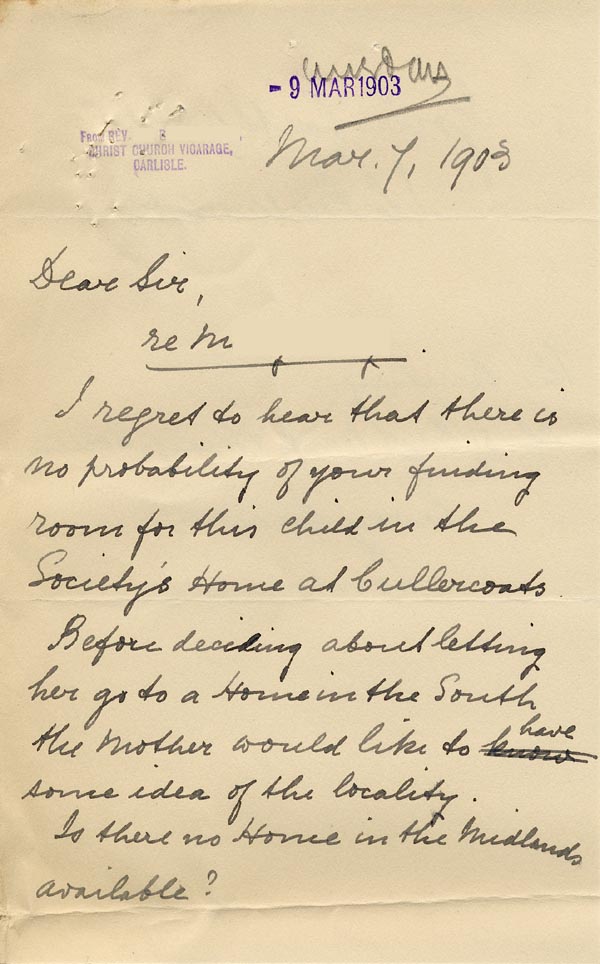 - 9 MAR 1903
From REV. B
CHRIST CHURCH VICARAGE,
CARLISLE.
Mar. 7, 1903
Dear Sir,
re M
I regret to hear that there is
no probability of your finding
room for this child in the
Society's Home at Cullercoats
Before deciding about letting
her go to a Home in the South
the Mother would like to know have
some idea of the locality.
Is there no Home in the Midlands
available?